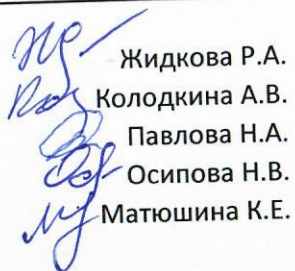 Жидкова Р.А.
Колодкина А.В.
Павлова Н.А.
Осипова Н.В.
Матюшина К.Е.